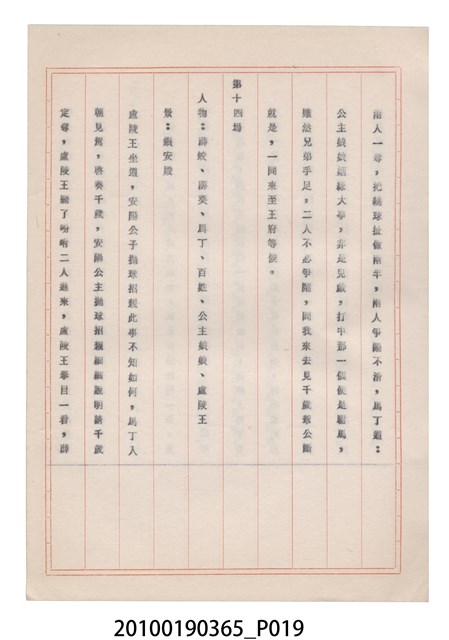 兩人一尋，把綉球扯做兩半，兩人爭論不洽，馬丁道：
公主娘娘姻緣大事，非是兒戲，打中那一個便是駙馬，
雖然兄弟手足，二人不必爭鬧，同我來去見千歲秉公斷
就是，一同來至王府等候。
第十四場
人物：薛蛟、薛葵、馬丁、百姓、公主娘娘、盧陵王
景：銀安殿
盧陵王坐道，安陽公子拋球招親此事不知如何，馬丁入
朝見駕，啓奏千歲，安陽公主拋球招親細細說明請千歲
定奪，盧陵王聽了吩咐二人進來，盧陵王舉目一看，薛
20100190365_P019